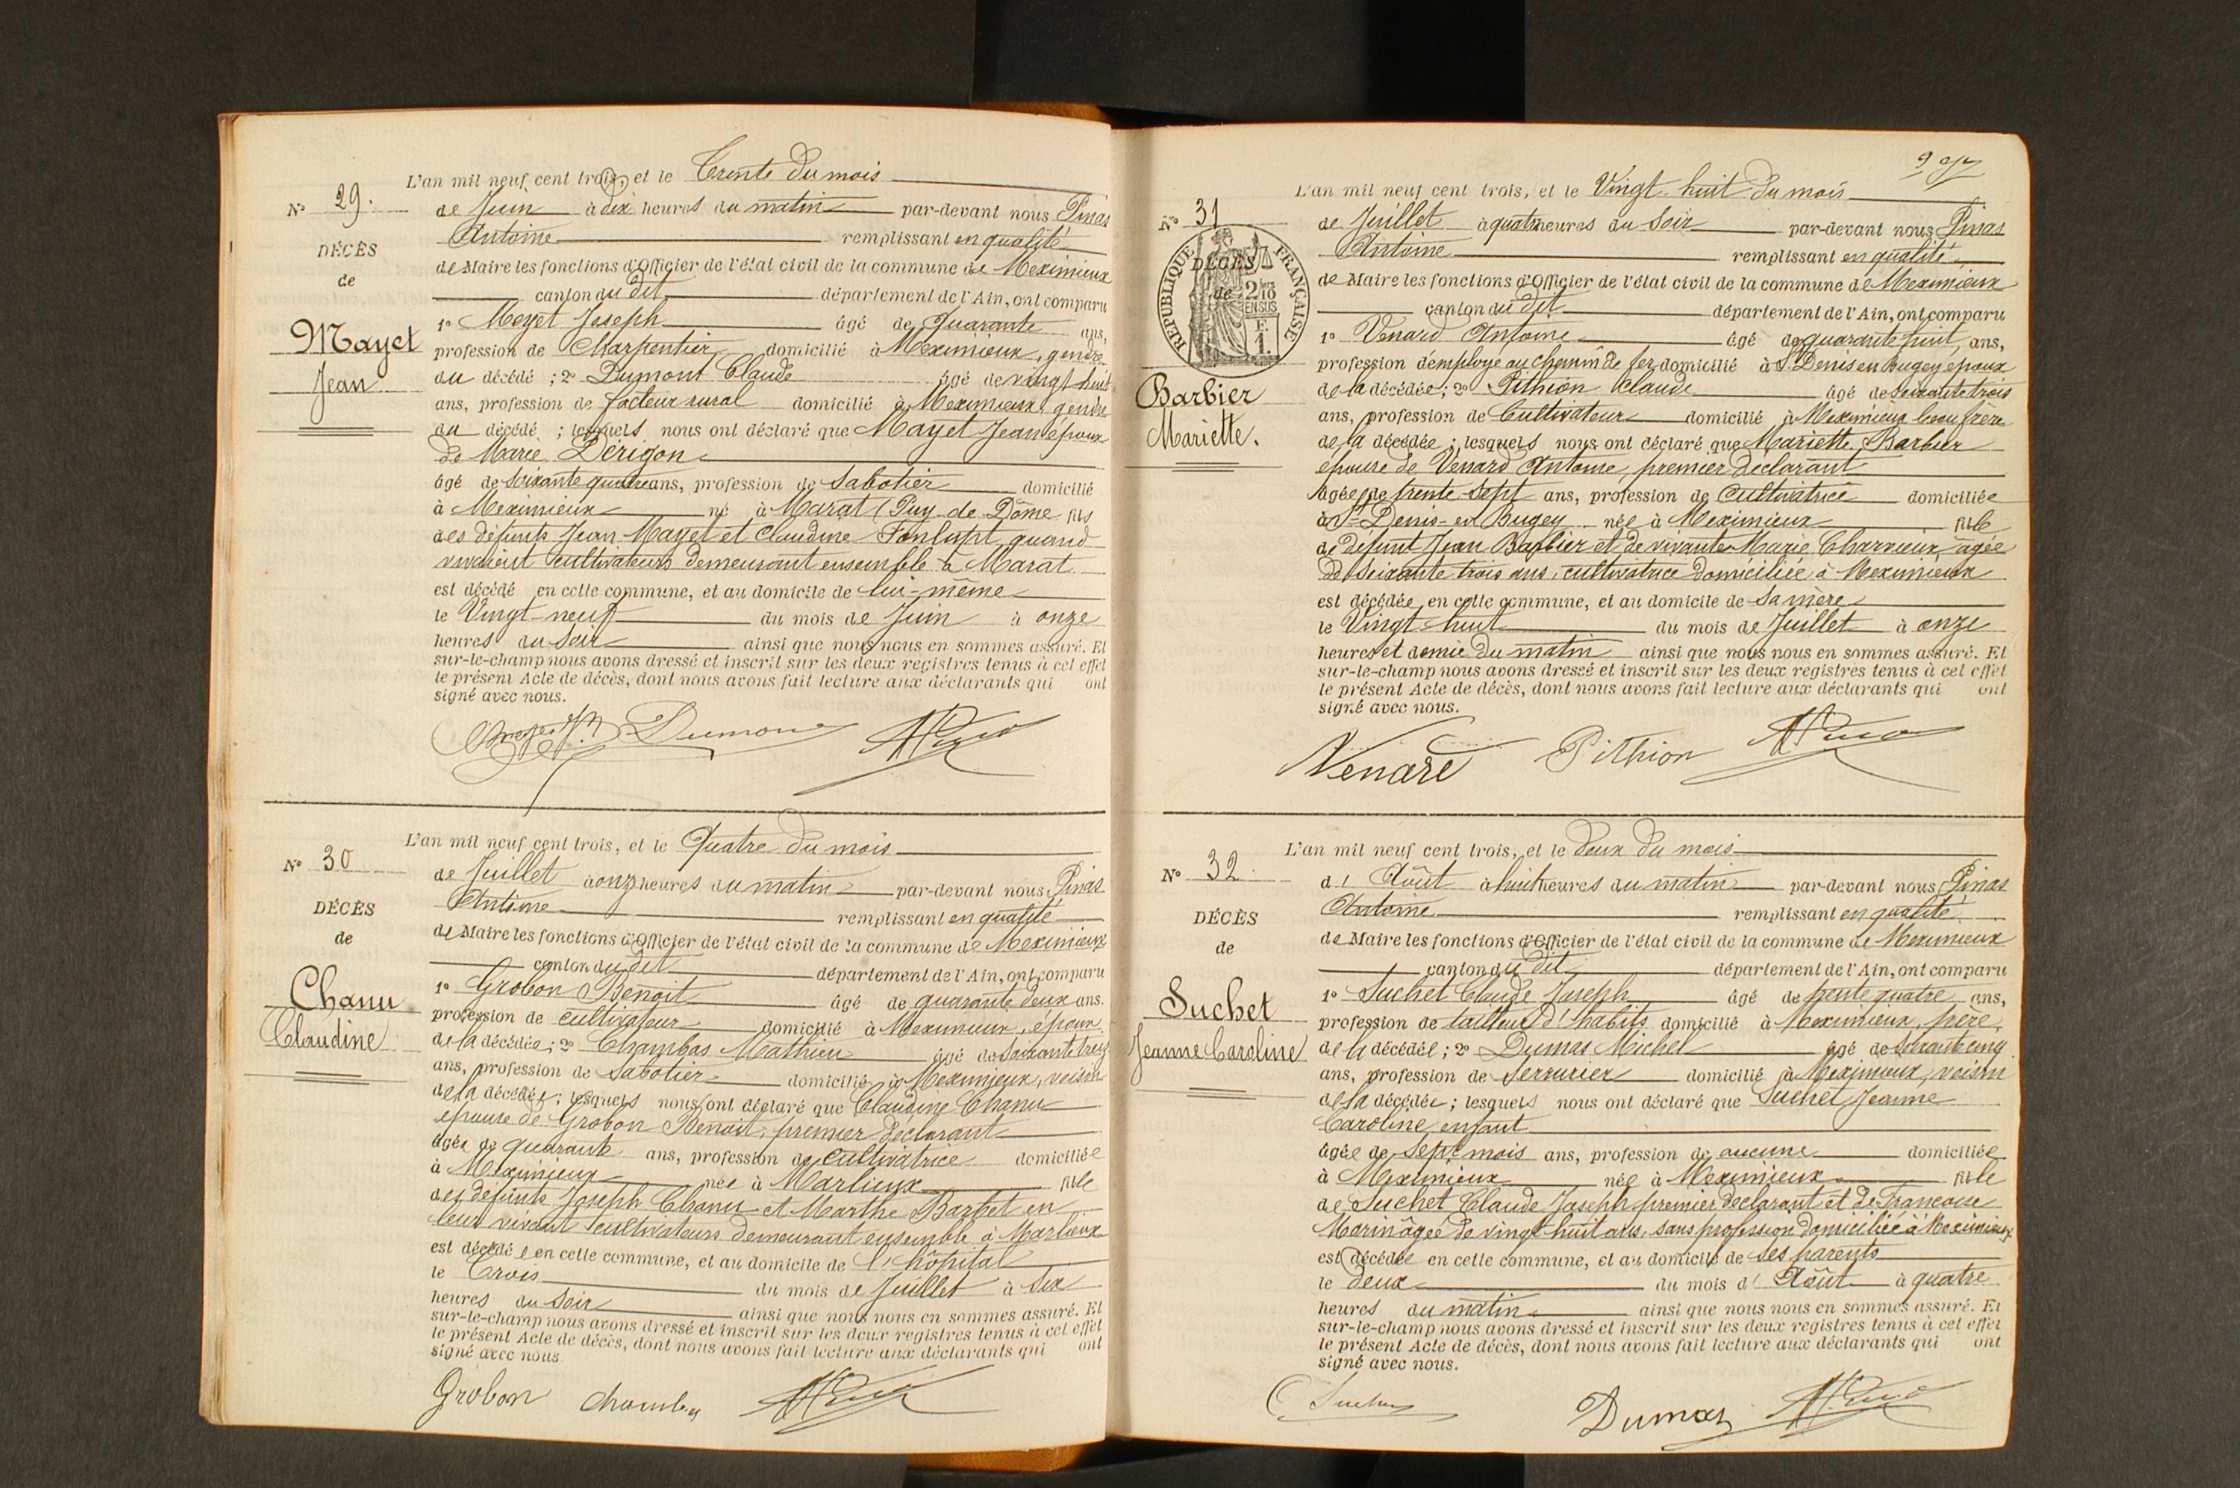 L'an mil neuf cent trois, et le Trente du mois
N° 29.
de Juin à dix heures du matin par-devant nous Pinas
Antoine remplissant en qualité
DÉCÈS
de Maire les fonctions d'Officier de l'état civil de la commune de Meximieux
de
canton du dit département de l'Ain, ont comparu
1° Meyet Joseph âgé de Quarante ans,
Mayet
profession de Charpentier domicilié à Meximieux, gendre
Jean
du décédé ; 2° Dumont Claude âgé de vingt huit
ans, profession de facteur rural domicilié à Meximieux, gendre
du décédé ; lesquels nous ont déclaré que Mayet Jean époux
de Marie Dérigon
âgé de soixante quatre ans, profession de Sabotier domicilié
à Meximieux né à Marat (Puy-de-Dôme fils
des défunts Jean Mayet et Claudine Fonlupt quand
vivaient cultivateurs demeurant ensemble à Marat
est décédé en cette commune, et au domicile de lui-même
le Vingt-neuf du mois de Juin à onze
heures du soir ainsi que nous nous en sommes assuré. Et
sur-le-champ nous avons dressé et inscrit sur les deux registres tenus à cet effet
le présent Acte de décès, dont nous avons fait lecture aux déclarants qui ont
signé avec nous.
Dumont
L'an mil neuf cent trois, et le Quatre du mois
N° 30
de Juillet à onze heures du matin par-devant nous Pinas
Antoine remplissant en qualité
DÉCÈS
de Maire les fonctions d'Officier de l'état civil de la commune de Meximieux
de
canton du dit département de l'Ain, ont comparu
1° Grobon Benoit âgé de quarante deux ans.
Chanu
profession de cultivateur domicilié à Meximieux, époux
Claudine
de la décédée ; 2° Chambas Mathieu âgé de soixante treize
ans, profession de Sabotier domicilié à Meximieux, voisin
de la décédée ; lesquels nous ont déclaré que Claudine Chanu
épouse de Grobon Benoit, premier déclarant
âgée de quarante ans, profession de cultivatrice domiciliée
à Meximieux née à Marlieux fille
des défunts Joseph Chanu et Marthe Barbet en
leur vivant cultivateurs demeurant ensemble à Marlieux
est décédée en cette commune, et au domicile de l'hôpital
le Trois du mois de Juillet à six
heures du soir ainsi que nous nous en sommes assuré. Et
sur-le-champ nous avons dressé et inscrit sur les deux registres tenus à cet effet
le présent Acte de décès, dont nous avons fait lecture aux déclarants qui ont
signé avec nous
Grobon Chambas
L'an mil neuf cent trois, et le Vingt-huit du mois
N° 31
de Juillet à quatre heures du soir par-devant nous Pinas
Antoine remplissant en qualité
RÉPUBLIQUE FRANÇAISE
DÉCÈS
de Maire les fonctions d'Officier de l'état civil de la commune de Meximieux
de
2/10 EN SUS
canton du dit département de l'Ain, ont comparu
1° Venard Antoine âgé de quarante huit, ans,
profession d'employé au chemin de fer domicilié à St Denis en Bugey époux
Barbier
de la décédée ; 2° Pithion Claude âgé de soixante trois
ans, profession de Cultivateur domicilié à Meximieux beau frère
Mariette.
de la décédée ; lesquels nous ont déclaré que Mariette Barbier
épouse de Venard Antoine, premier déclarant
âgée de trente-sept ans, profession de cultivatrice domiciliée
à St Denis-en Bugey née à Meximieux fille
de défunt Jean Barbier et de vivante Marie Charvieux, âgée
de soixante trois ans, cultivatrice domiciliée à Meximieux
est décédée en cette commune, et au domicile de sa mère
le Vingt-huit du mois de Juillet à onze
heures et demie du matin ainsi que nous nous en sommes assuré. Et
sur-le-champ nous avons dressé et inscrit sur les deux registres tenus à cet effet
le présent Acte de décès, dont nous avons fait lecture aux déclarants qui ont
signé avec nous.
Venard Pithion
L'an mil neuf cent trois, et le deux du mois
N° 32
d' Août à huit heures du matin par-devant nous Pinas
Antoine remplissant en qualité
DÉCÈS
de Maire les fonctions d'Officier de l'état civil de la commune de Meximieux
de
canton du dit département de l'Ain, ont comparu
1° Suchet Claude Joseph âgé de trente quatre ans,
Suchet
profession de tailleur d'habits domicilié à Meximieux, père,
Jeanne Caroline
de la décédée ; 2° Dumas Michel âgé de soixante cinq
ans, profession de Serrurier domicilié à Meximieux, voisin
de la décédée ; lesquels nous ont déclaré que Suchet Jeanne
Caroline, enfant
âgée de sept mois ans, profession de aucune domiciliée
à Meximieux née à Meximieux fille
de Suchet Claude Joseph premier déclarant et de Françoise
Morin âgée de vingt-huit ans, sans profession domiciliée à Meximieux
est décédée en cette commune, et au domicile de ses parents
le deux du mois d' Août à quatre
heures du matin ainsi que nous nous en sommes assuré. Et
sur-le-champ nous avons dressé et inscrit sur les deux registres tenus à cet effet
le présent Acte de décès, dont nous avons fait lecture aux déclarants qui ont
signé avec nous.
C Suchet Dumas